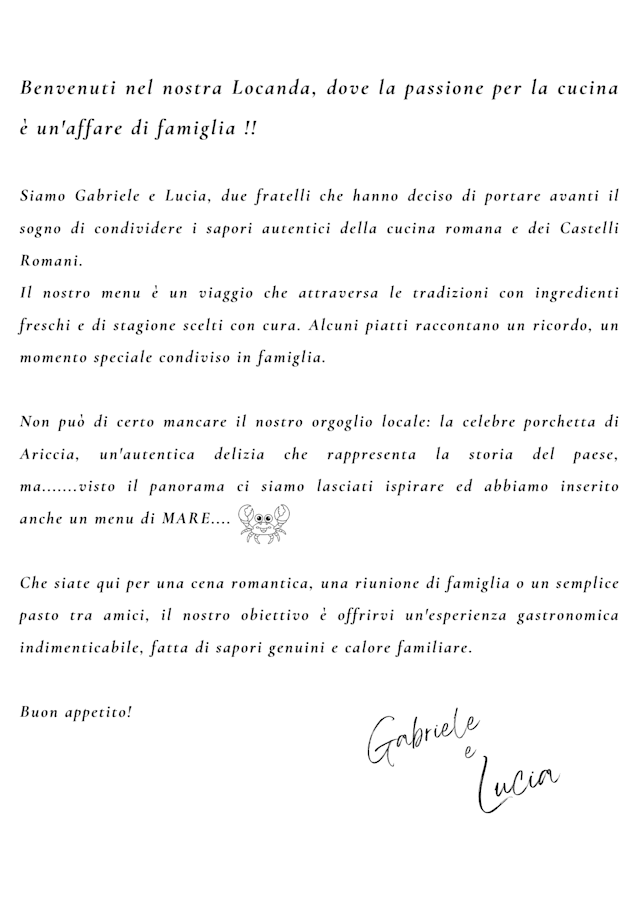 Benvenuti nel nostra Locanda, dove la passione per la cucina
è un'affare di famiglia !!
Siamo Gabriele e Lucia, due fratelli che hanno deciso di portare avanti il
sogno di condividere i sapori autentici della cucina romana e dei Castelli
Romani.
Il nostro menu è un viaggio che attraversa le tradizioni con ingredienti
freschi e di stagione scelti con cura. Alcuni piatti raccontano un ricordo, un
momento speciale condiviso in famiglia.
Non può di certo mancare il nostro orgoglio locale: la celebre porchetta di
Ariccia, un'autentica delizia che rappresenta la storia del paese,
ma.......visto il panorama ci siamo lasciati ispirare ed abbiamo inserito
anche un menu di MARE....
Che siate qui per una cena romantica, una riunione di famiglia o un semplice
pasto tra amici, il nostro obiettivo è offrirvi un'esperienza gastronomica
indimenticabile, fatta di sapori genuini e calore familiare.
Buon appetito!
Gabriele
e
Lucia